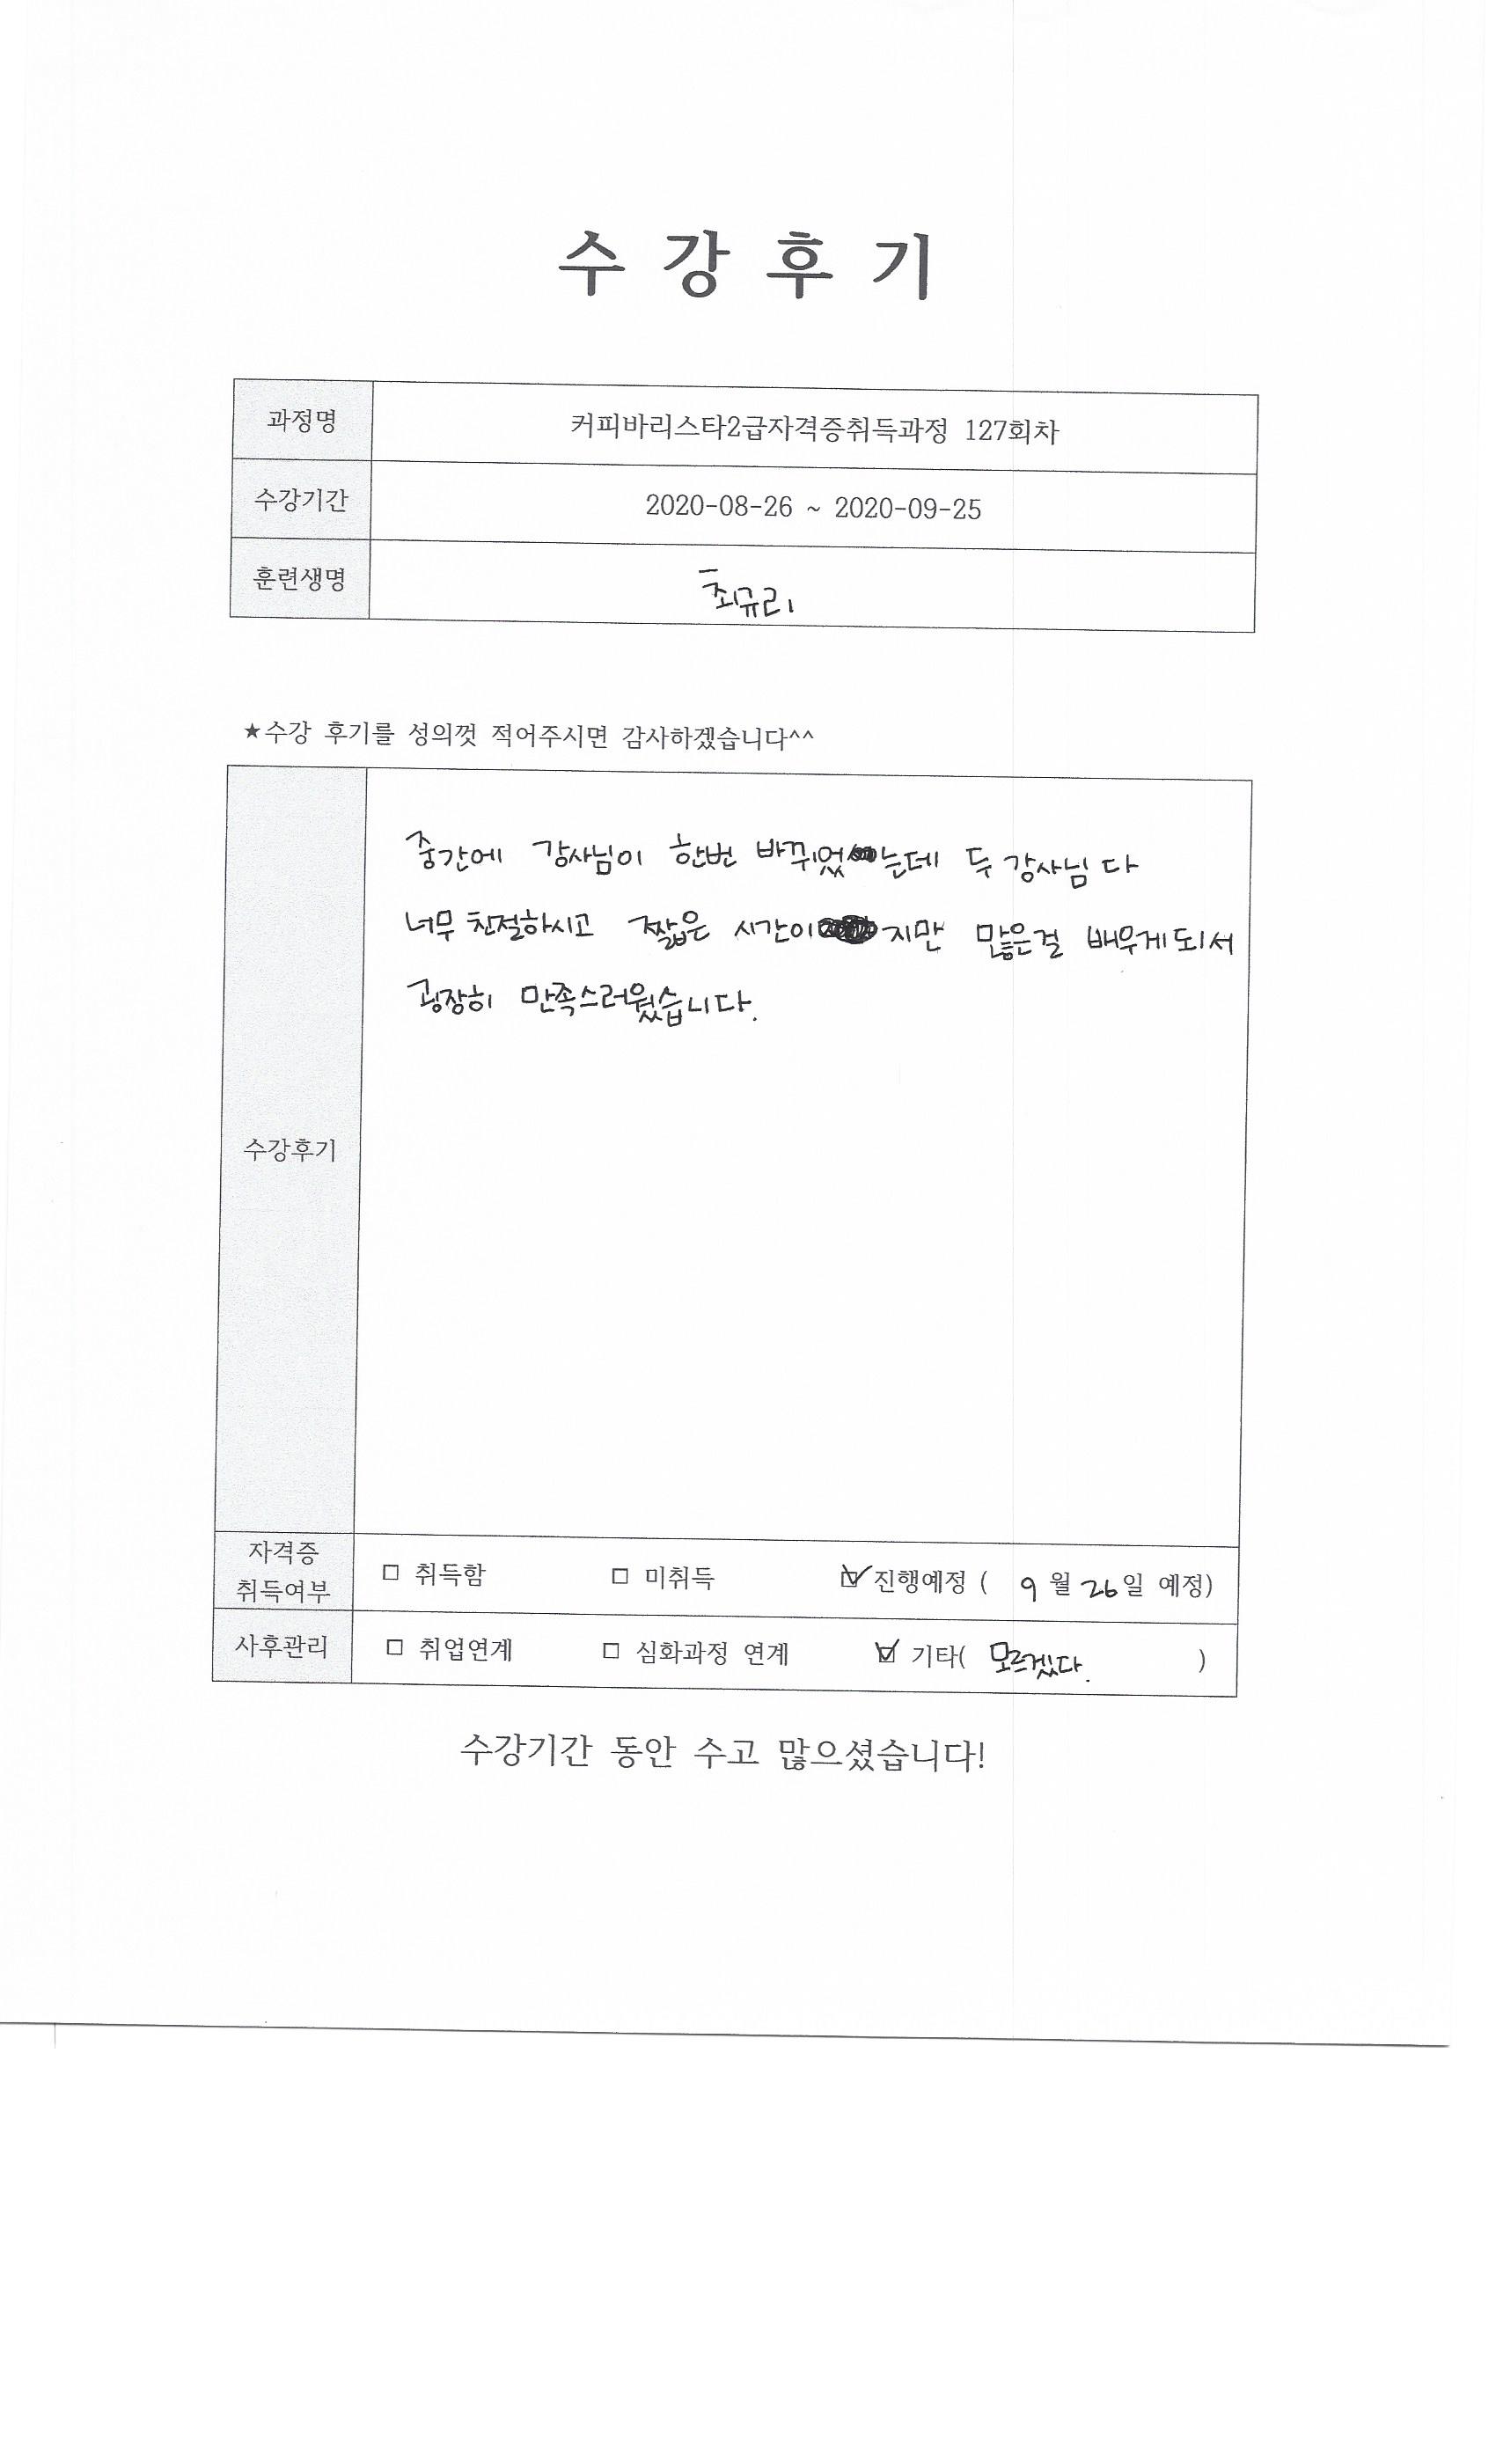 수 강 후 기
과정명 커피바리스타2급자격증취득과정 127회차
수강기간 2020-08-26 ~ 2020-09-25
훈련생명 최규리
★수강 후기를 성의껏 적어주시면 감사하겠습니다^^
중간에 강사님이 한번 바뀌었는데 두 강사님 다
너무 친절하시고 짧은 시간이지만 많은걸 배우게되서
굉장히 만족스러웠습니다.
수강후기
자격증
취득여부 □ 취득함 □ 미취득 ☑ 진행예정 ( 9 월 26일 예정)
사후관리 □ 취업연계 □ 심화과정 연계 ☑ 기타( 모르겠다. )
수강기간 동안 수고 많으셨습니다!